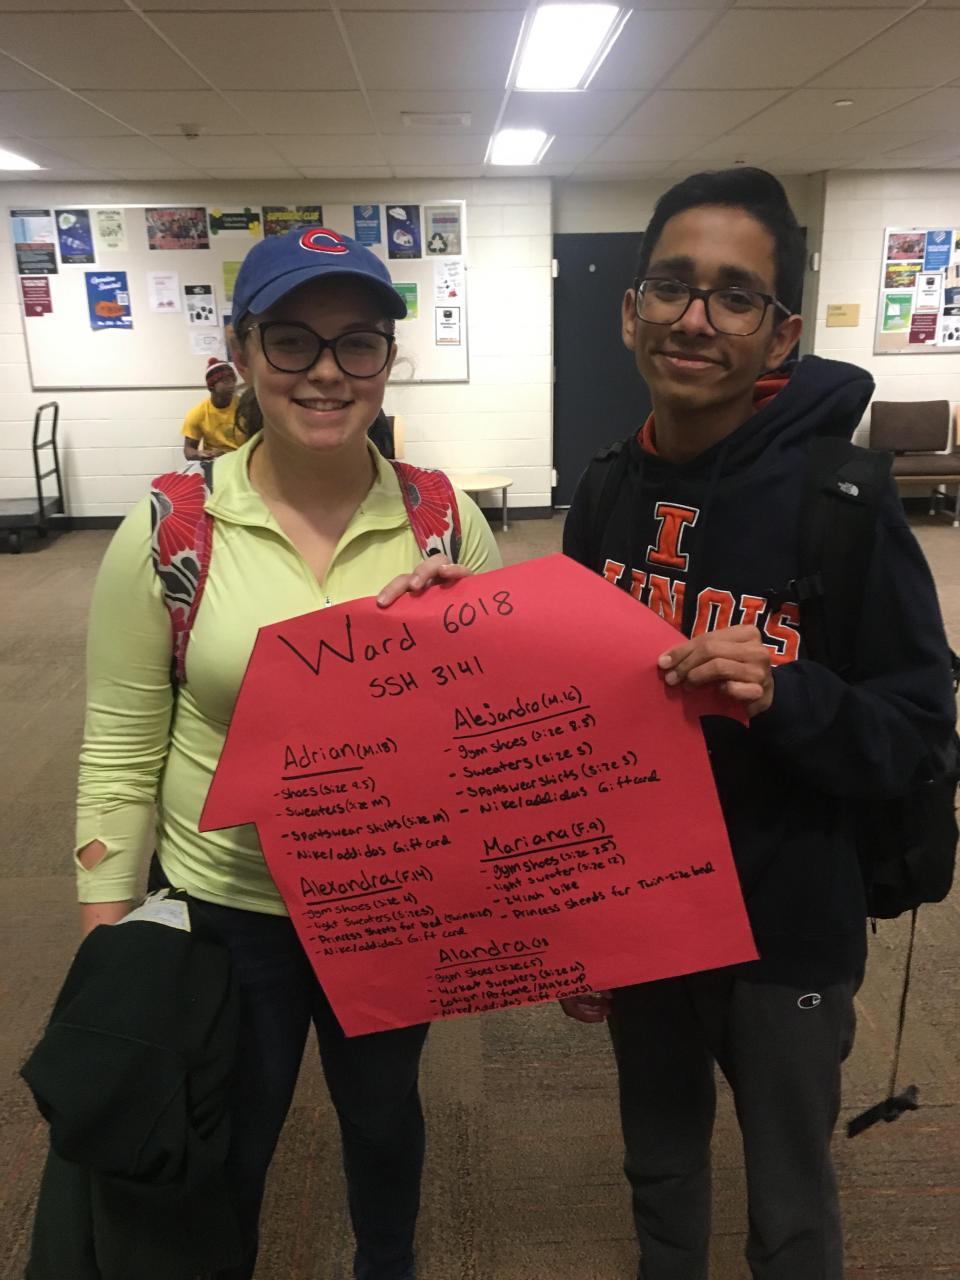 C
SUPERMAC CLUB
I
ILLINOIS
Ward 6018
SSH 3141
Adrian (M.18)
- Shoes (size 9.5)
- Sweaters (size M)
- Sportswear shirts (size M)
- Nike/addidas Gift card
Alejandro (M.16)
- gym shoes (size 8.5)
- Sweaters (size S)
- Sportswear shirts (size S)
- Nike/addidas Giftcard
Alexandra (F.14)
- gym shoes (size 4)
- light sweaters (size S)
- Princess sheets for bed (twin size)
- Nike/addidas Gift card
Mariana (F.9)
- gym shoes (size 2.5)
- light sweater (size 12)
- 24inh bike
- Princess Sheads for Twin-size bed
Alandra
- gym shoes (size 6.5)
- Workout sweaters (size M)
- Lotion/Perfume/Makeup
- Nike/addidas Gift Cards)